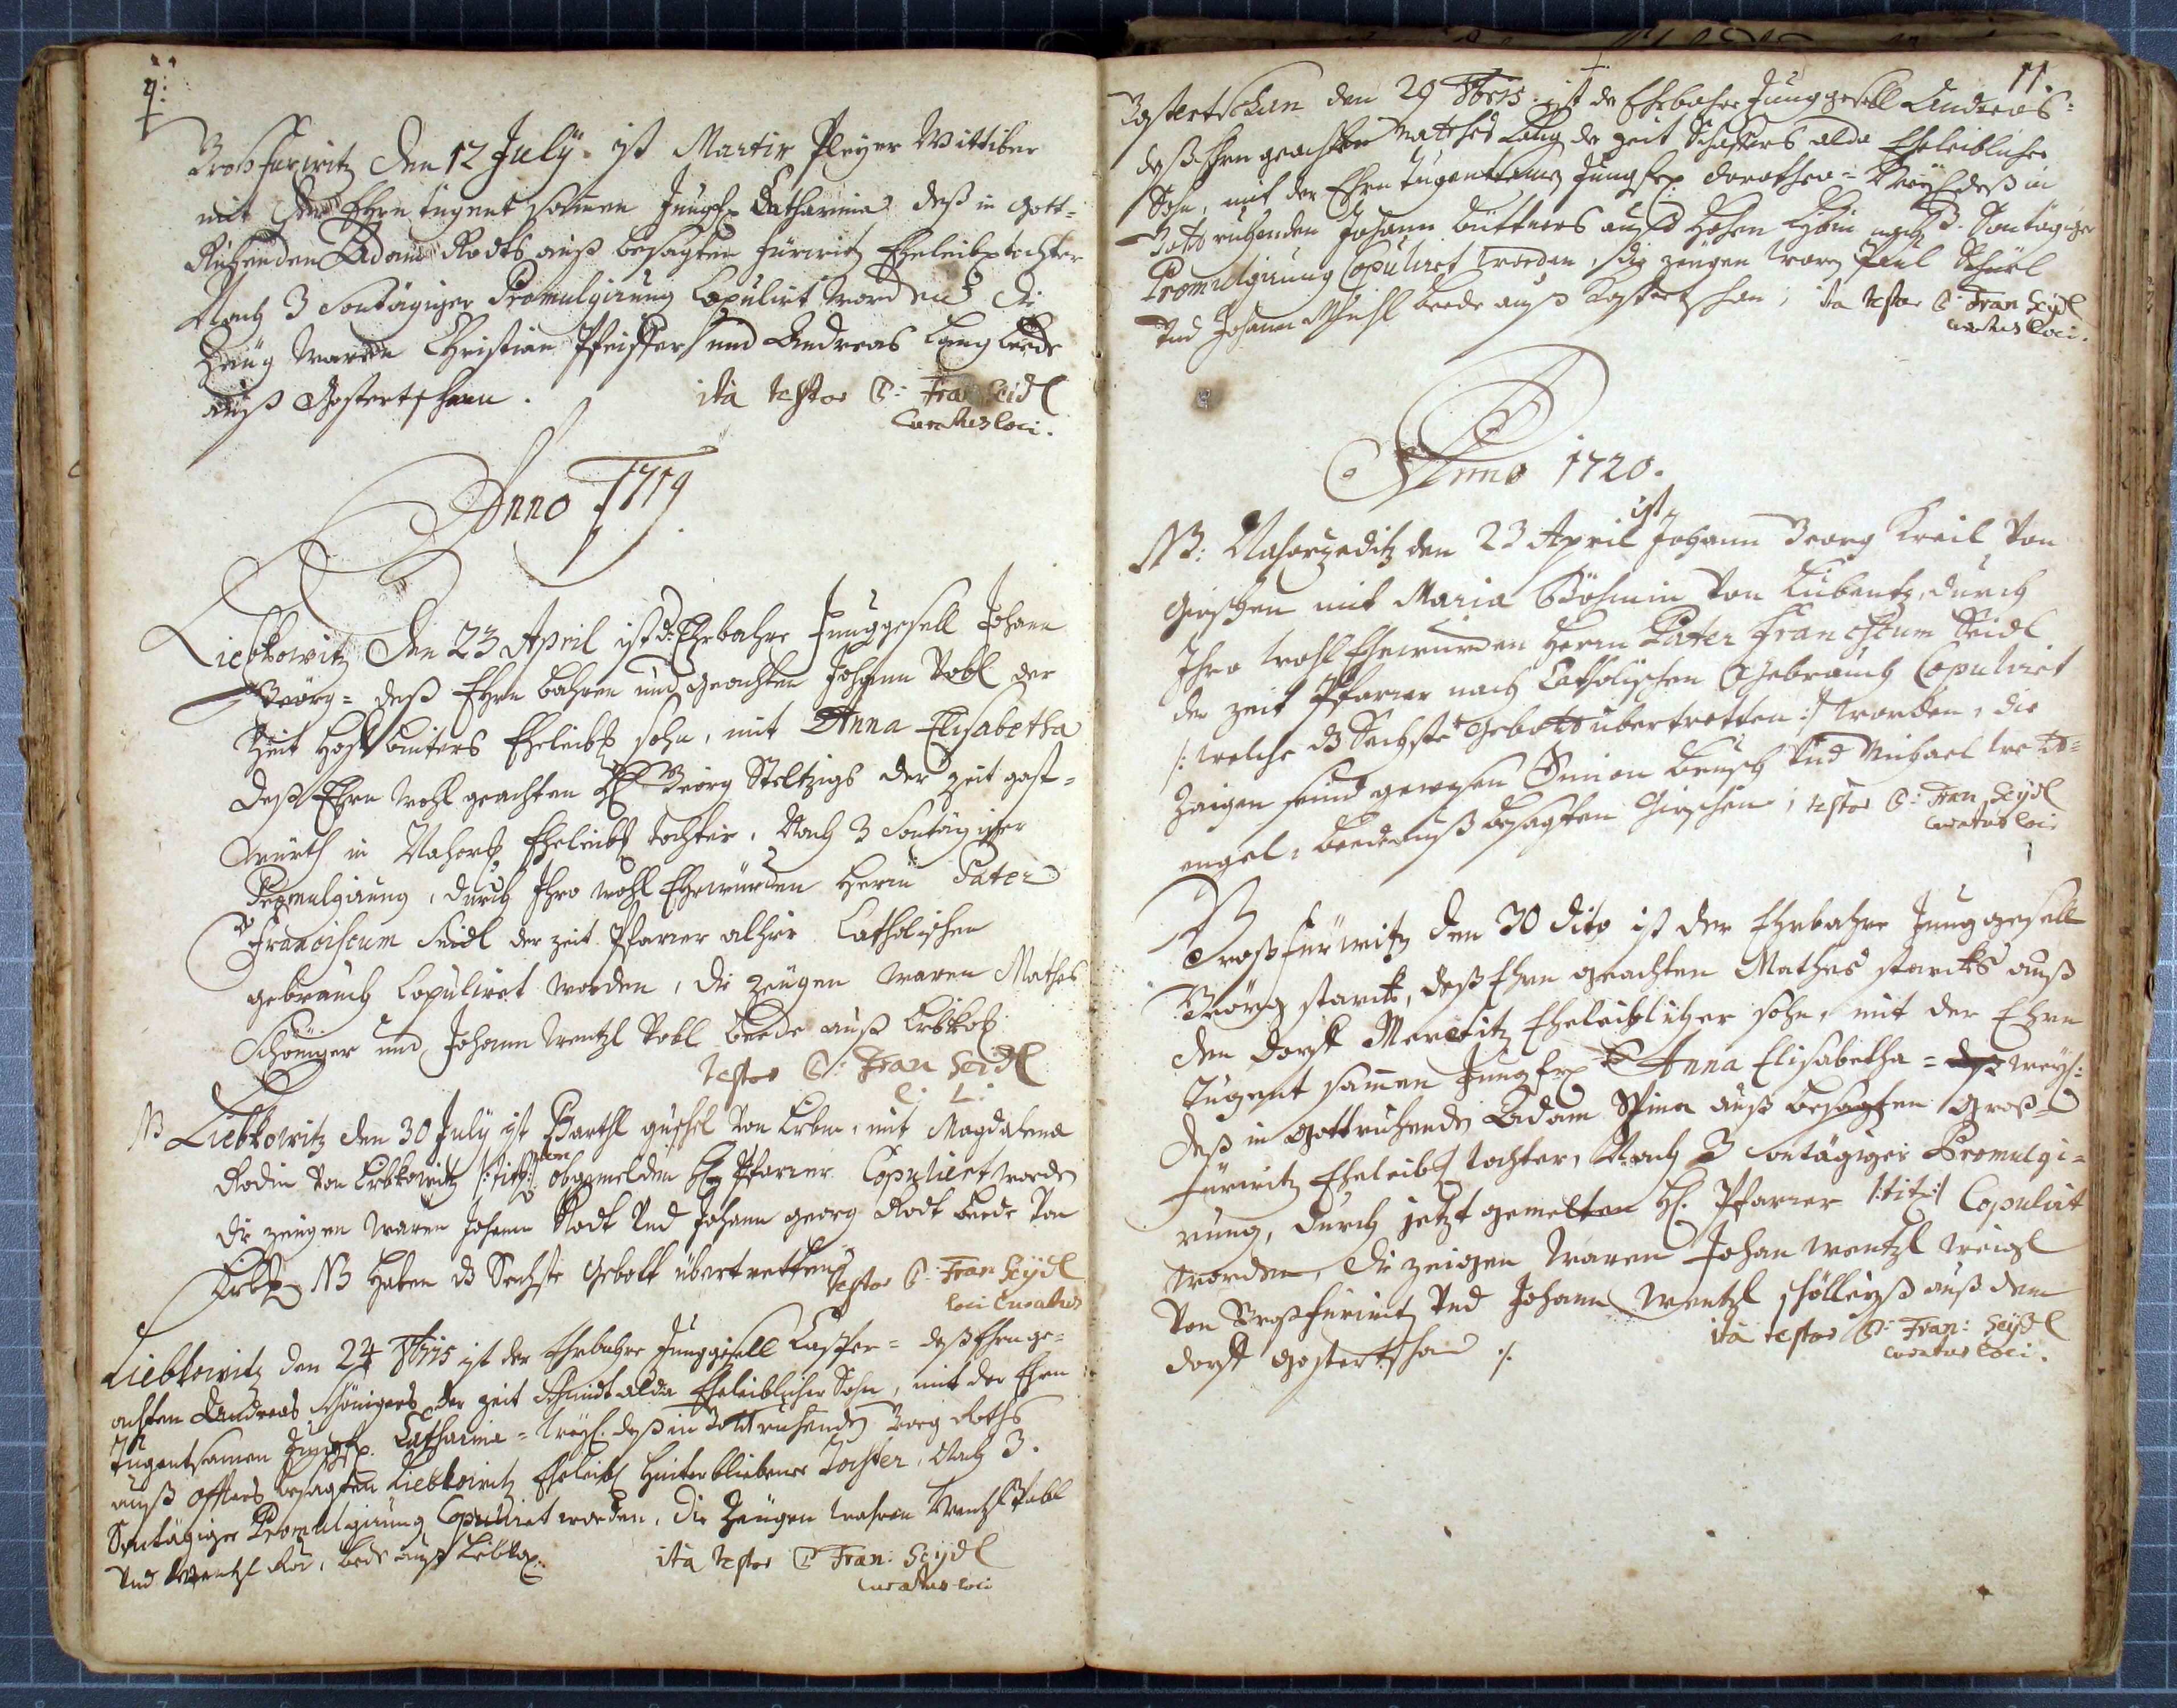 9.
Großfürwitz den 12 July ist Martin Pleyer Wittiber
mit der Ehrn tugent samen Jungfr. Catharina deß in Gott-
Ruhenden Adam Rodts auß besagten fürwitz Eheleibl. tochter
Nach 3 Sontägiger Promulgirung Copulirt worden die
Zeüg waren Christian Pfeiffer und Andreas Lang beede
auß Gostertschann.
ita testor P: Fran Seidl
Curatus loci.
Anno 1719
Liebkowitz den 23 April ist d. Ehrbahre Junggesell Johann
Geörg = deß Ehrn bahren und geachten Johann Pobl der
Zeit Hoff Eheleibl. sohn, mit Anna Elisabetha
deß Ehrn wohl geachten H. Geörg Steltzigs der Zeit gast-
würth in Nahorz. Eheleibl. tochter, Nach 3 Sontägiger
Promulgirung, durch Ihro wohl Ehrwürden Herrn Pater
Franciscum Seidl der zeit Pfarrer alhier Catholischen
gebrauch Copuliret worden, die zeügen waren Mathes
Schöniger und Johann Wentzl Pobl beede auß Libkoz.
testor P: Fran Seidl
C: L:
NB Liebkowitz den 30 July ist Barthl von mit Magdalena
Rodin von Libkowitz /:tit:/ von obgemelden H. Pfarrer Copuliret worden
die zeugen waren Johann Rodt Und Johann georg Rodt beede Von
Libkoz. NB haben dz Sechste Gebott übertretten
testor P: Fran Seydl
loci Curatus
Liebkowitz den 24 8bris ist der Ehrbahre Junggesell Casper = deß Ehrn ge-
achten Andreas Schönigers der zeit Schmidt alda Eheleiblicher Sohn, mit der Ehrn
tugentsamen Jungfr. Catharina = weyl. deß in Gott ruhenden Georg Roths
auß offters besagten Liebkowitz Eheleibl. hinterbliebene Tochter, Nach 3.
Sontägiger Promulgirung Copuliret worden, die Zeugen wahren Wentzl Pobl
Und Wentzl beede auß Libkoz.
ita testor P: Fran: Seydl
curatus loci
11.
Gostertschan den 29 8bris ist der Ehrbahre Junggesell Andreas =
deß Ehrn geachten Mathes Lang der zeit Schaffers alda Eheleiblicher
Sohn, mit der Ehrn tugentsamen Jungfr. Dorothea = Weyl. deß in
Gott ruhenden Johann Büttners auß Hohen nach 3. Sontägiger
Promulgirung Copuliret worden, die zeugen waren Paul
Und Johann beede auß Gostertschan;
ita testor P: Fran Seydl
curatus loci.
Anno 1720.
NB: Nahorzeditz den 23 April ist Johann Georg Kreil Von
Girschen mit Maria Böhmin Von Lubentz, durch
Ihro wohl Ehrwürden Herrn Pater Franciscum Seidl
der zeit Pfarrer nach Catholischen Gebrauch Copuliret
/: welche dz Sechste Gebott übertretten :/ worden, die
Zeigen seind gewesen Simon Und Michael
engel, beede auß besagten Girschen;
testor P: Fran Seydl
curatus loci
Großfürwitz den 30 dito ist der Ehrbahre Junggesell
Geörg starck, deß Ehrn geachten Mathes starcks auß
den dorff Merwitz Eheleiblicher sohn, mit der Ehrn
tugent samen Jungfr. Anna Elisabetha = weyl:
deß in Gott ruhenden Adam Spina auß besagten Groß-
fürwitz Eheleibl. tochter, Nach 3 Sontägiger Promulgi-
rung, durch jetzt gemelten H. Pfarrer /:tit:/ Copulirt
worden, die zeigen waren Johan Wentzl
Von Großfürwitz Und Johann Wentzl auß dem
dorff Gostertschan ./.
ita testor P: Fran: Seydl
curatus loci.